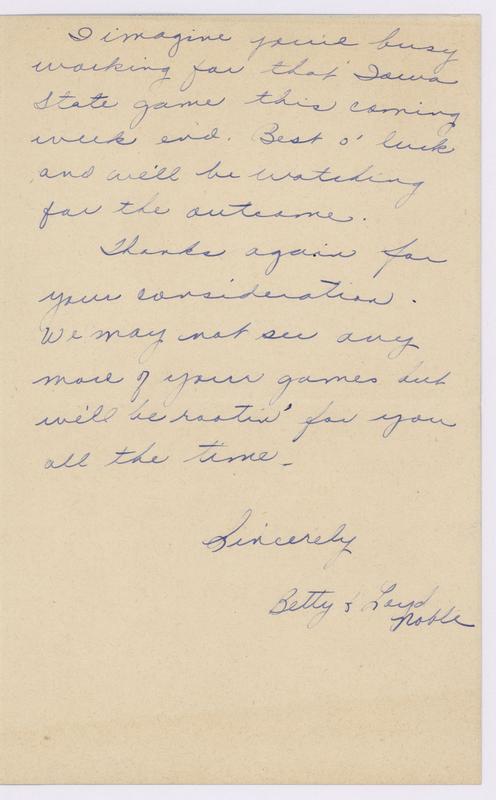 I imagine you're busy
working for that Iowa
State game this coming
week end. Best o' luck
and we'll be watching
for the outcome.
Thanks again for
your consideration.
We may not see any
more of your games but
we'll be rootin' for you
all the time.
Sincerely
Betty & Loyd
Noble